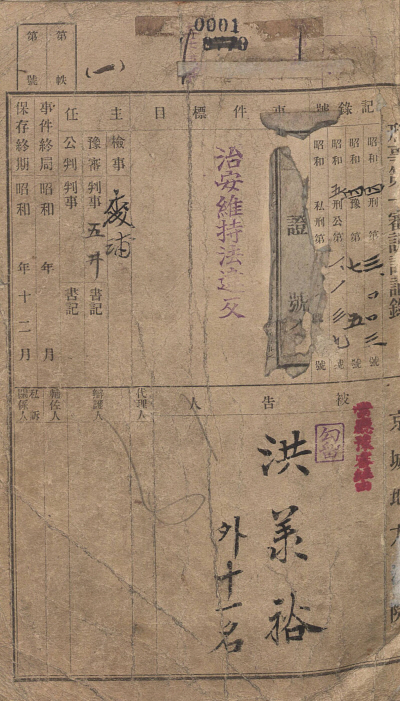 0001
第 帙
第 號
(一)
記錄號
昭和 四 刑 第 三〇〇三 號
昭和 四 豫 第 七五 號
昭和 五 刑公 第 號
昭和 私刑 第 號
證 號
事件標目
治安維持法違反
主任
檢事
豫審判事 五井 書記
公判判事 書記
事件終局 昭和 年 月
保存終期 昭和 年 十二 月
被告人
勾留
洪 裕
外十一名
代理人
辯護人
輔佐人
私訴
關係人
京城地方